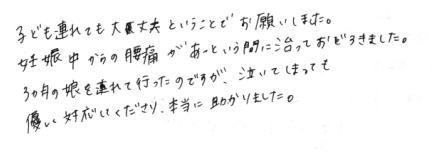 子ども連れても大丈夫ということでお願いしました。
妊娠中からの腰痛があーという間に治っておどろきました。
3ヵ月の娘を連れて行ったのですが、泣いてしまっても
優しく対応してくださり、本当に助かりました。